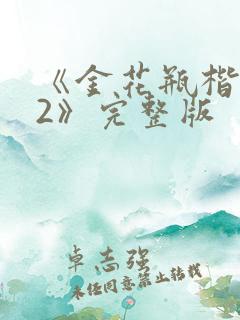 《金花瓶楷
2》完整版
卓志强
未经同意禁止转载